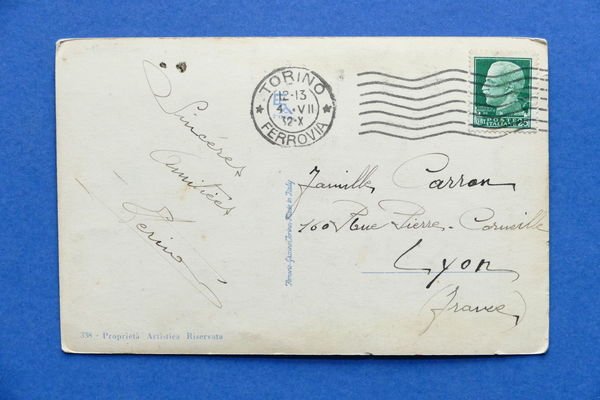 Sinceres
amitiés
Perino
TORINO
12-13
4 · VII
32-X
FERROVIA
POSTE
ITALIANE
25
Famille Carron
160 Rue Pierre-Corneille
Lyon
(France)
338 - Proprietà Artistica Riservata